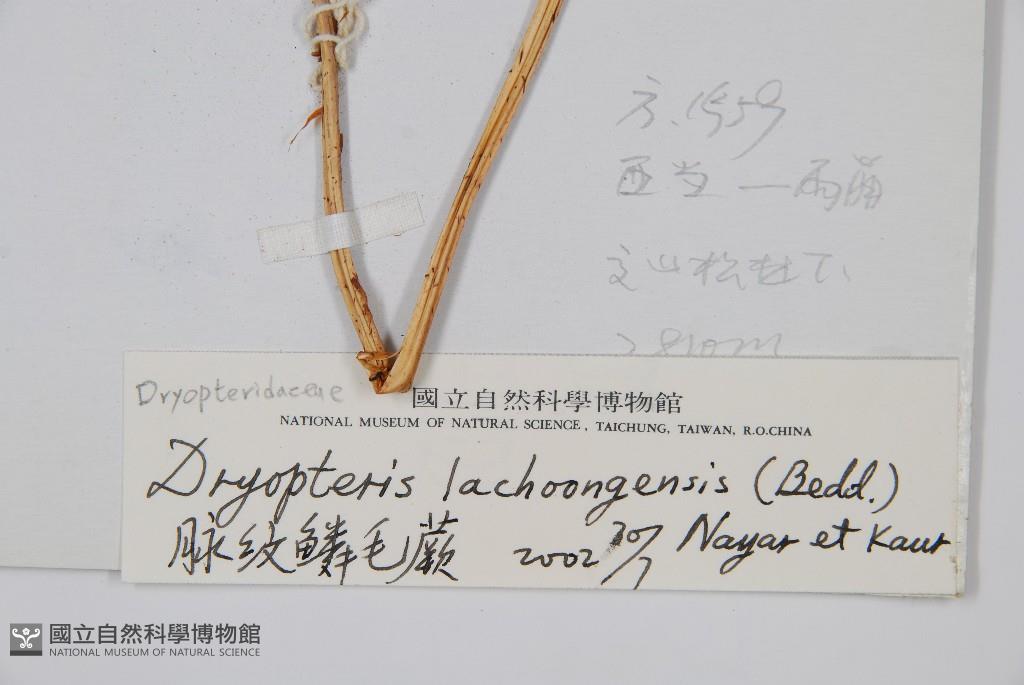 方.1959
西当一雨崩
松林下
Dryopteridaceae
國立自然科學博物館
NATIONAL MUSEUM OF NATURAL SCIENCE, TAICHUNG, TAIWAN, R.O.CHINA
Dryopteris lachoongensis (Bedd.)
脉纹鳞毛蕨 2002 30/7 Nayar et Kaur
國立自然科學博物館
NATIONAL MUSEUM OF NATURAL SCIENCE